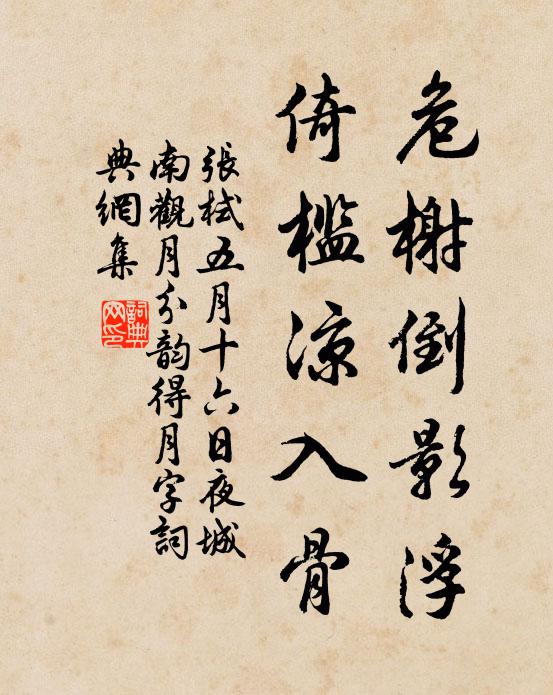 危榭倒影浮
倚檻凉入骨
張栻五月十六日夜城
南觀月分韵得月字詞
典網集
詞典
网印